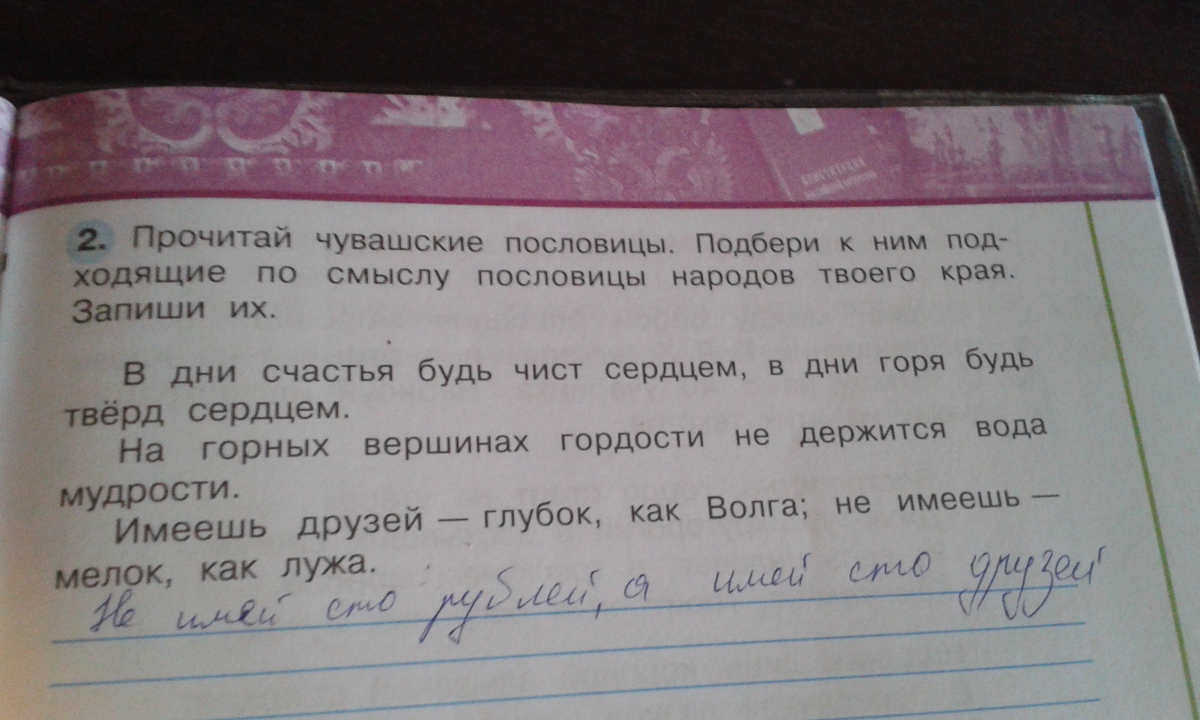 КОНСТИТУЦИЯ
2. Прочитай чувашские пословицы. Подбери к ним под-
ходящие по смыслу пословицы народов твоего края.
Запиши их.
В дни счастья будь чист сердцем, в дни горя будь
твёрд сердцем.
На горных вершинах гордости не держится вода
мудрости.
Имеешь друзей — глубок, как Волга; не имеешь —
мелок, как лужа.
Не имей сто рублей, а имей сто друзей